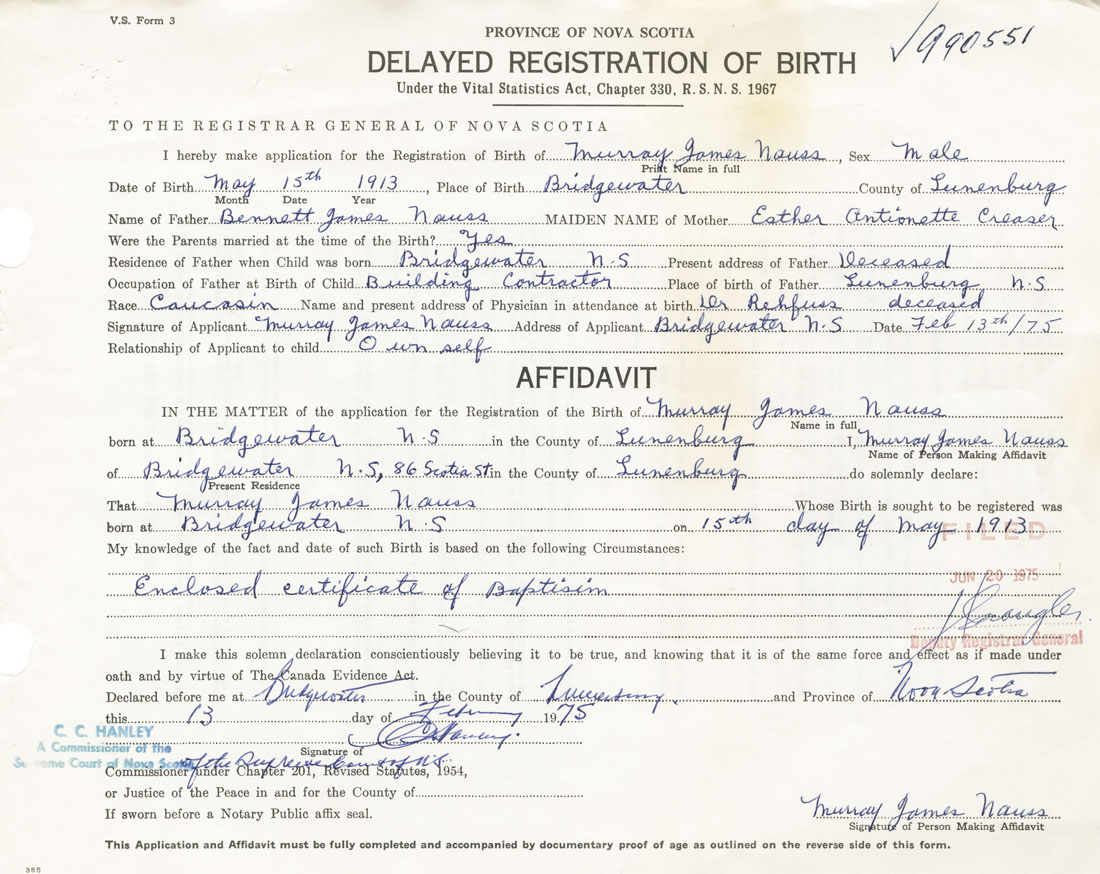 V.S. Form 3
√990551
PROVINCE OF NOVA SCOTIA
DELAYED REGISTRATION OF BIRTH
Under the Vital Statistics Act, Chapter 330, R. S. N. S. 1967
TO THE REGISTRAR GENERAL OF NOVA SCOTIA
I hereby make application for the Registration of Birth of Murray James Nauss, Sex Male
Print Name in full
Date of Birth May 15th 1913, Place of Birth Bridgewater County of Lunenburg
Month Date Year
Name of Father Bennett James Nauss MAIDEN NAME of Mother Esther Antionette Creaser
Were the Parents married at the time of the Birth? Yes
Residence of Father when Child was born Bridgewater N.S Present address of Father Deceased
Occupation of Father at Birth of Child Building Contractor Place of birth of Father Lunenburg N.S
Race Caucasin Name and present address of Physician in attendance at birth Dr Rehfuss deceased
Signature of Applicant Murray James Nauss Address of Applicant Bridgewater N.S Date Feb 13th/75
Relationship of Applicant to child Own self
AFFIDAVIT
IN THE MATTER of the application for the Registration of the Birth of Murray James Nauss
Name in full
born at Bridgewater N.S in the County of Lunenburg I, Murray James Nauss
Name of Person Making Affidavit
of Bridgewater N.S, 86 Scotia St in the County of Lunenburg do solemnly declare:
Present Residence
That Murray James Nauss Whose Birth is sought to be registered was
born at Bridgewater N.S on 15th day of May 1913
FILED
My knowledge of the fact and date of such Birth is based on the following Circumstances:
JUN 20 1975
Enclosed certificate of Baptisim
Deputy Registrar General
I make this solemn declaration conscientiously believing it to be true, and knowing that it is of the same force and effect as if made under
oath and by virtue of The Canada Evidence Act.
Declared before me at Bridgewater in the County of Lunenburg and Province of Nova Scotia
this 13 day of February 1975
C. C. HANLEY
A Commissioner of the
Supreme Court of Nova Scotia
CC Hanley
Signature of
of the Supreme Court of N.S.
Commissioner under Chapter 201, Revised Statutes, 1954,
or Justice of the Peace in and for the County of
If sworn before a Notary Public affix seal.
Murray James Nauss
Signature of Person Making Affidavit
This Application and Affidavit must be fully completed and accompanied by documentary proof of age as outlined on the reverse side of this form.
385